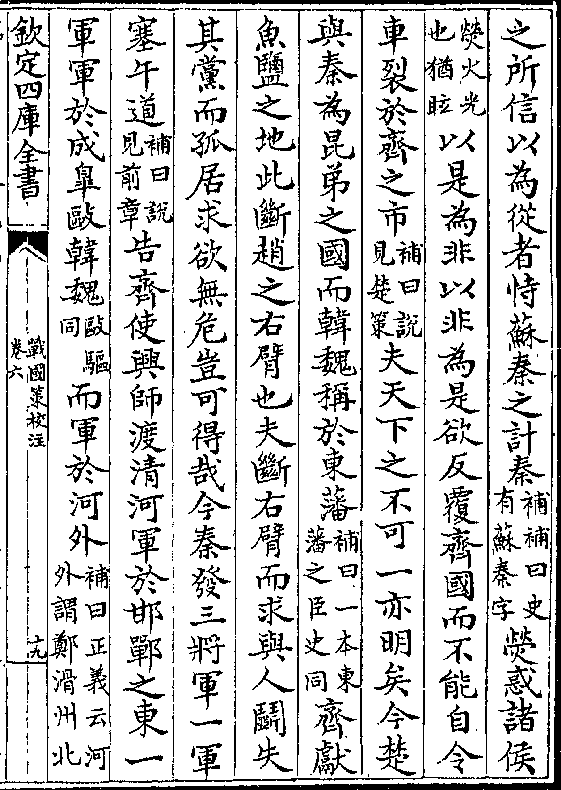 之所信以為從者恃蘇秦之計秦補補曰史有蘇秦字熒惑諸侯
熒火光也猶眩以是為非以非為是欲反覆齊國而不能自令
車裂於齊之市補曰說見楚策夫天下之不可一亦明矣今楚
與秦為昆弟之國而韓魏稱於東藩補曰一本東藩之臣史同齊獻
魚鹽之地此斷趙之右臂也夫斷右臂而求與人鬬失
其黨而孤居求欲無危豈可得哉今秦發三將軍一軍
塞午道補曰說見前章告齊使興師渡清河軍於邯鄲之東一
軍軍於成臯敺韓魏敺驅同而軍於河外補曰正義云河外謂鄭滑州北
欽定四庫全書
戰國策校注
卷六
十九